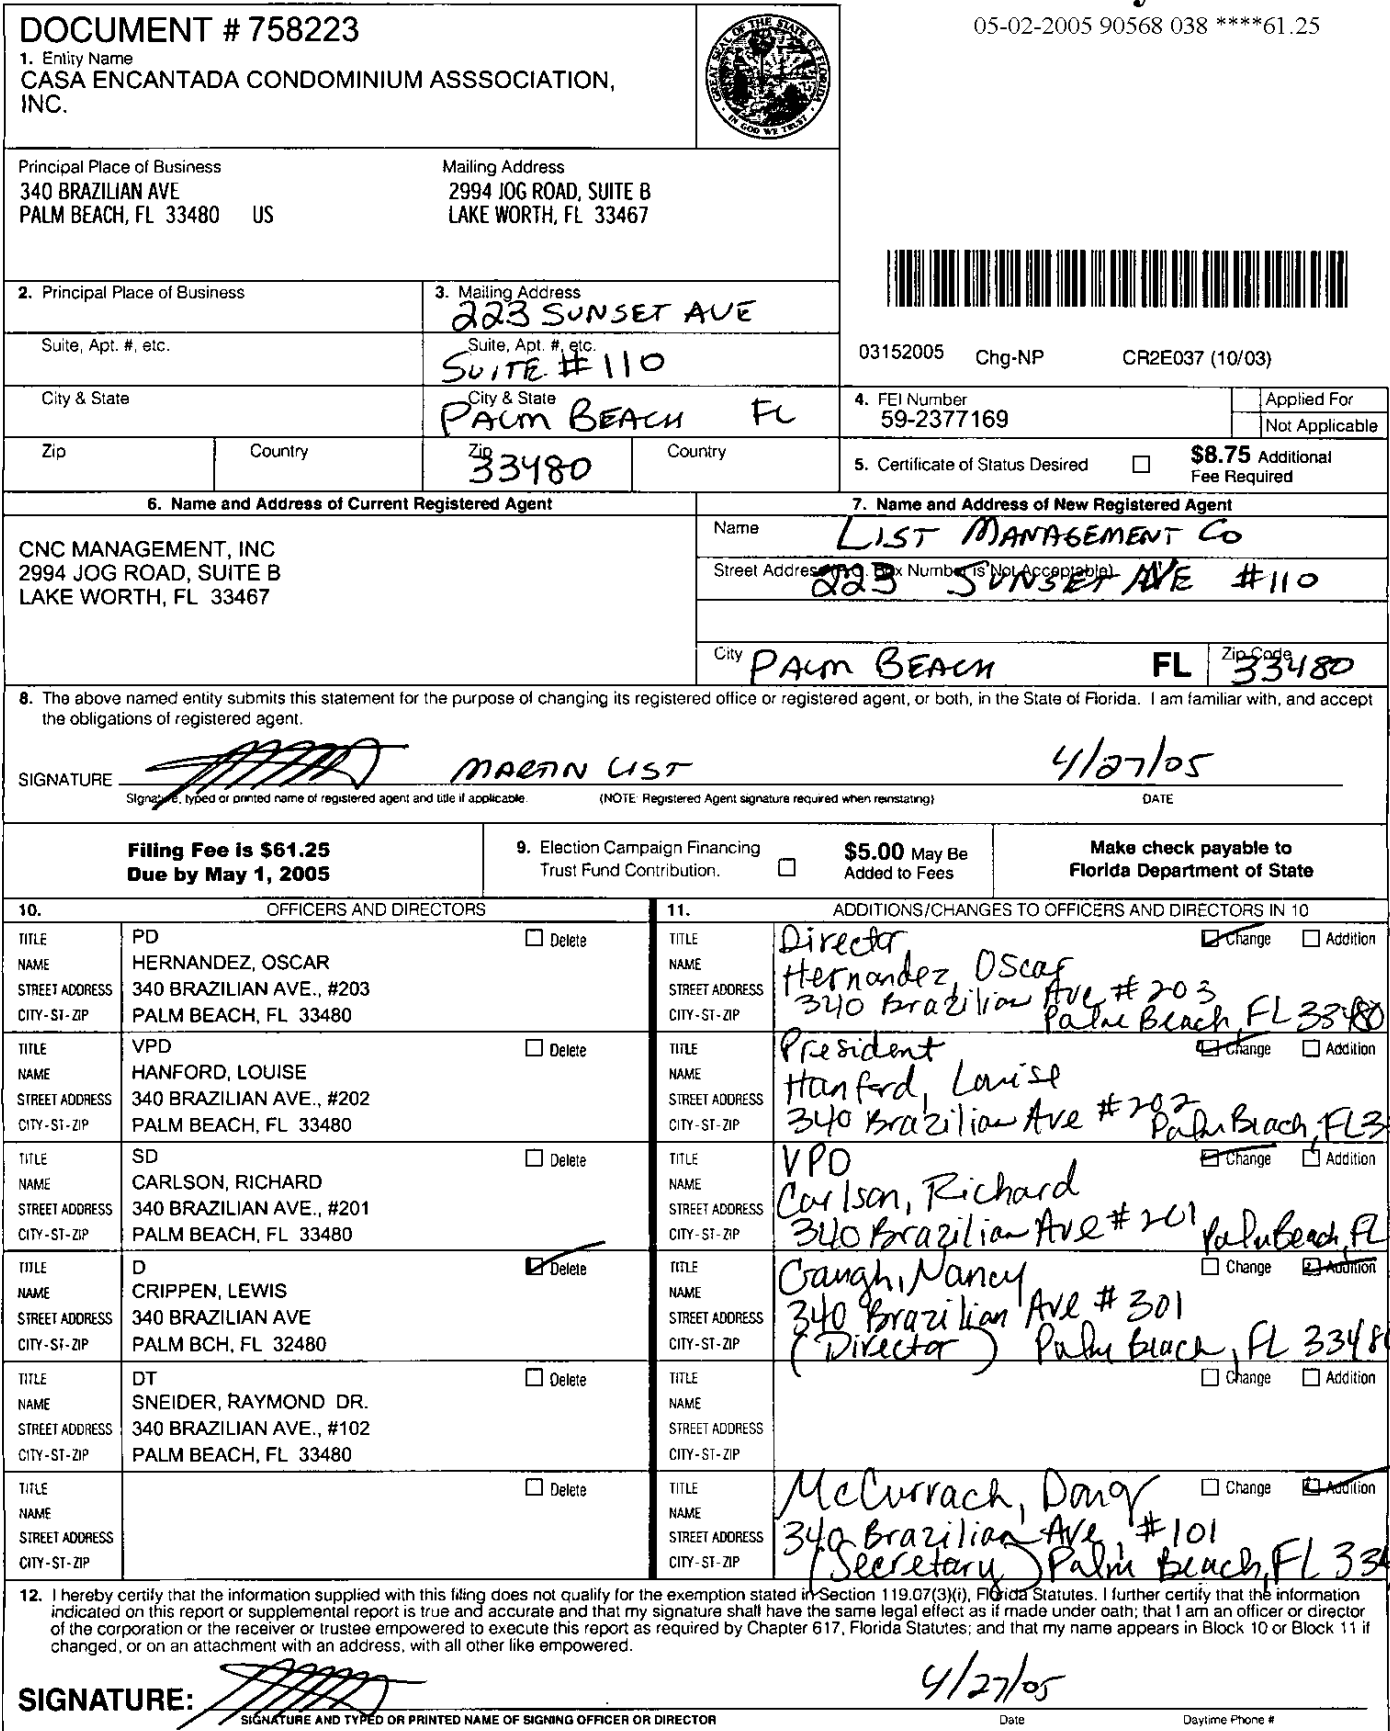 05-02-2005 90568 038 ****61.25
DOCUMENT # 758223
1. Entity Name
CASA ENCANTADA CONDOMINIUM ASSSOCIATION,
INC.
GREAT SEAL OF THE STATE OF FLORIDA
IN GOD WE TRUST
Principal Place of Business
340 BRAZILIAN AVE
PALM BEACH, FL 33480 US
Mailing Address
2994 JOG ROAD, SUITE B
LAKE WORTH, FL 33467
2. Principal Place of Business
3. Mailing Address
223 SUNSET AVE
Suite, Apt. #, etc.
Suite, Apt. #, etc.
SUITE #110
City & State
City & State
PALM BEACH FL
Zip
Country
Zip
33480
Country
03152005 Chg-NP CR2E037 (10/03)
4. FEI Number
59-2377169
Applied For
Not Applicable
5. Certificate of Status Desired
$8.75 Additional
Fee Required
6. Name and Address of Current Registered Agent
CNC MANAGEMENT, INC
2994 JOG ROAD, SUITE B
LAKE WORTH, FL 33467
7. Name and Address of New Registered Agent
Name LIST MANAGEMENT CO
Street Address (P.O. Box Number is Not Acceptable)
223 SUNSET AVE #110
City PALM BEACH FL Zip Code 33480
8. The above named entity submits this statement for the purpose of changing its registered office or registered agent, or both, in the State of Florida. I am familiar with, and accept
the obligations of registered agent.
SIGNATURE MARTIN LIST 4/27/05
Signature, typed or printed name of registered agent and title if applicable. (NOTE: Registered Agent signature required when reinstating) DATE
Filing Fee is $61.25
Due by May 1, 2005
9. Election Campaign Financing
Trust Fund Contribution.
$5.00 May Be
Added to Fees
Make check payable to
Florida Department of State
10. OFFICERS AND DIRECTORS
11. ADDITIONS/CHANGES TO OFFICERS AND DIRECTORS IN 10
TITLE PD Delete
NAME HERNANDEZ, OSCAR
STREET ADDRESS 340 BRAZILIAN AVE., #203
CITY-ST-ZIP PALM BEACH, FL 33480
TITLE Director Change Addition
NAME Hernandez, Oscar
STREET ADDRESS 340 Brazilian Ave #203
CITY-ST-ZIP Palm Beach, FL 33480
TITLE VPD Delete
NAME HANFORD, LOUISE
STREET ADDRESS 340 BRAZILIAN AVE., #202
CITY-ST-ZIP PALM BEACH, FL 33480
TITLE President Change Addition
NAME Hanford, Louise
STREET ADDRESS 340 Brazilian Ave #202
CITY-ST-ZIP Palm Beach, FL 3
TITLE SD Delete
NAME CARLSON, RICHARD
STREET ADDRESS 340 BRAZILIAN AVE., #201
CITY-ST-ZIP PALM BEACH, FL 33480
TITLE VPD Change Addition
NAME Carlson, Richard
STREET ADDRESS 340 Brazilian Ave #201
CITY-ST-ZIP Palm Beach, FL
TITLE D Delete
NAME CRIPPEN, LEWIS
STREET ADDRESS 340 BRAZILIAN AVE
CITY-ST-ZIP PALM BCH, FL 32480
TITLE Change Addition
NAME Gaugh, Nancy
STREET ADDRESS 340 Brazilian Ave #301
CITY-ST-ZIP (Director) Palm Beach, FL 33480
TITLE DT Delete
NAME SNEIDER, RAYMOND DR.
STREET ADDRESS 340 BRAZILIAN AVE., #102
CITY-ST-ZIP PALM BEACH, FL 33480
TITLE Change Addition
NAME
STREET ADDRESS
CITY-ST-ZIP
TITLE Delete
NAME
STREET ADDRESS
CITY-ST-ZIP
TITLE Change Addition
NAME McCurrach, Doug
STREET ADDRESS 340 Brazilian Ave, #101
CITY-ST-ZIP (Secretary) Palm Beach, FL 334
12. I hereby certify that the information supplied with this filing does not qualify for the exemption stated in Section 119.07(3)(i), Florida Statutes. I further certify that the information
indicated on this report or supplemental report is true and accurate and that my signature shall have the same legal effect as if made under oath; that I am an officer or director
of the corporation or the receiver or trustee empowered to execute this report as required by Chapter 617, Florida Statutes; and that my name appears in Block 10 or Block 11 if
changed, or on an attachment with an address, with all other like empowered.
SIGNATURE: 4/27/05
SIGNATURE AND TYPED OR PRINTED NAME OF SIGNING OFFICER OR DIRECTOR Date Daytime Phone #